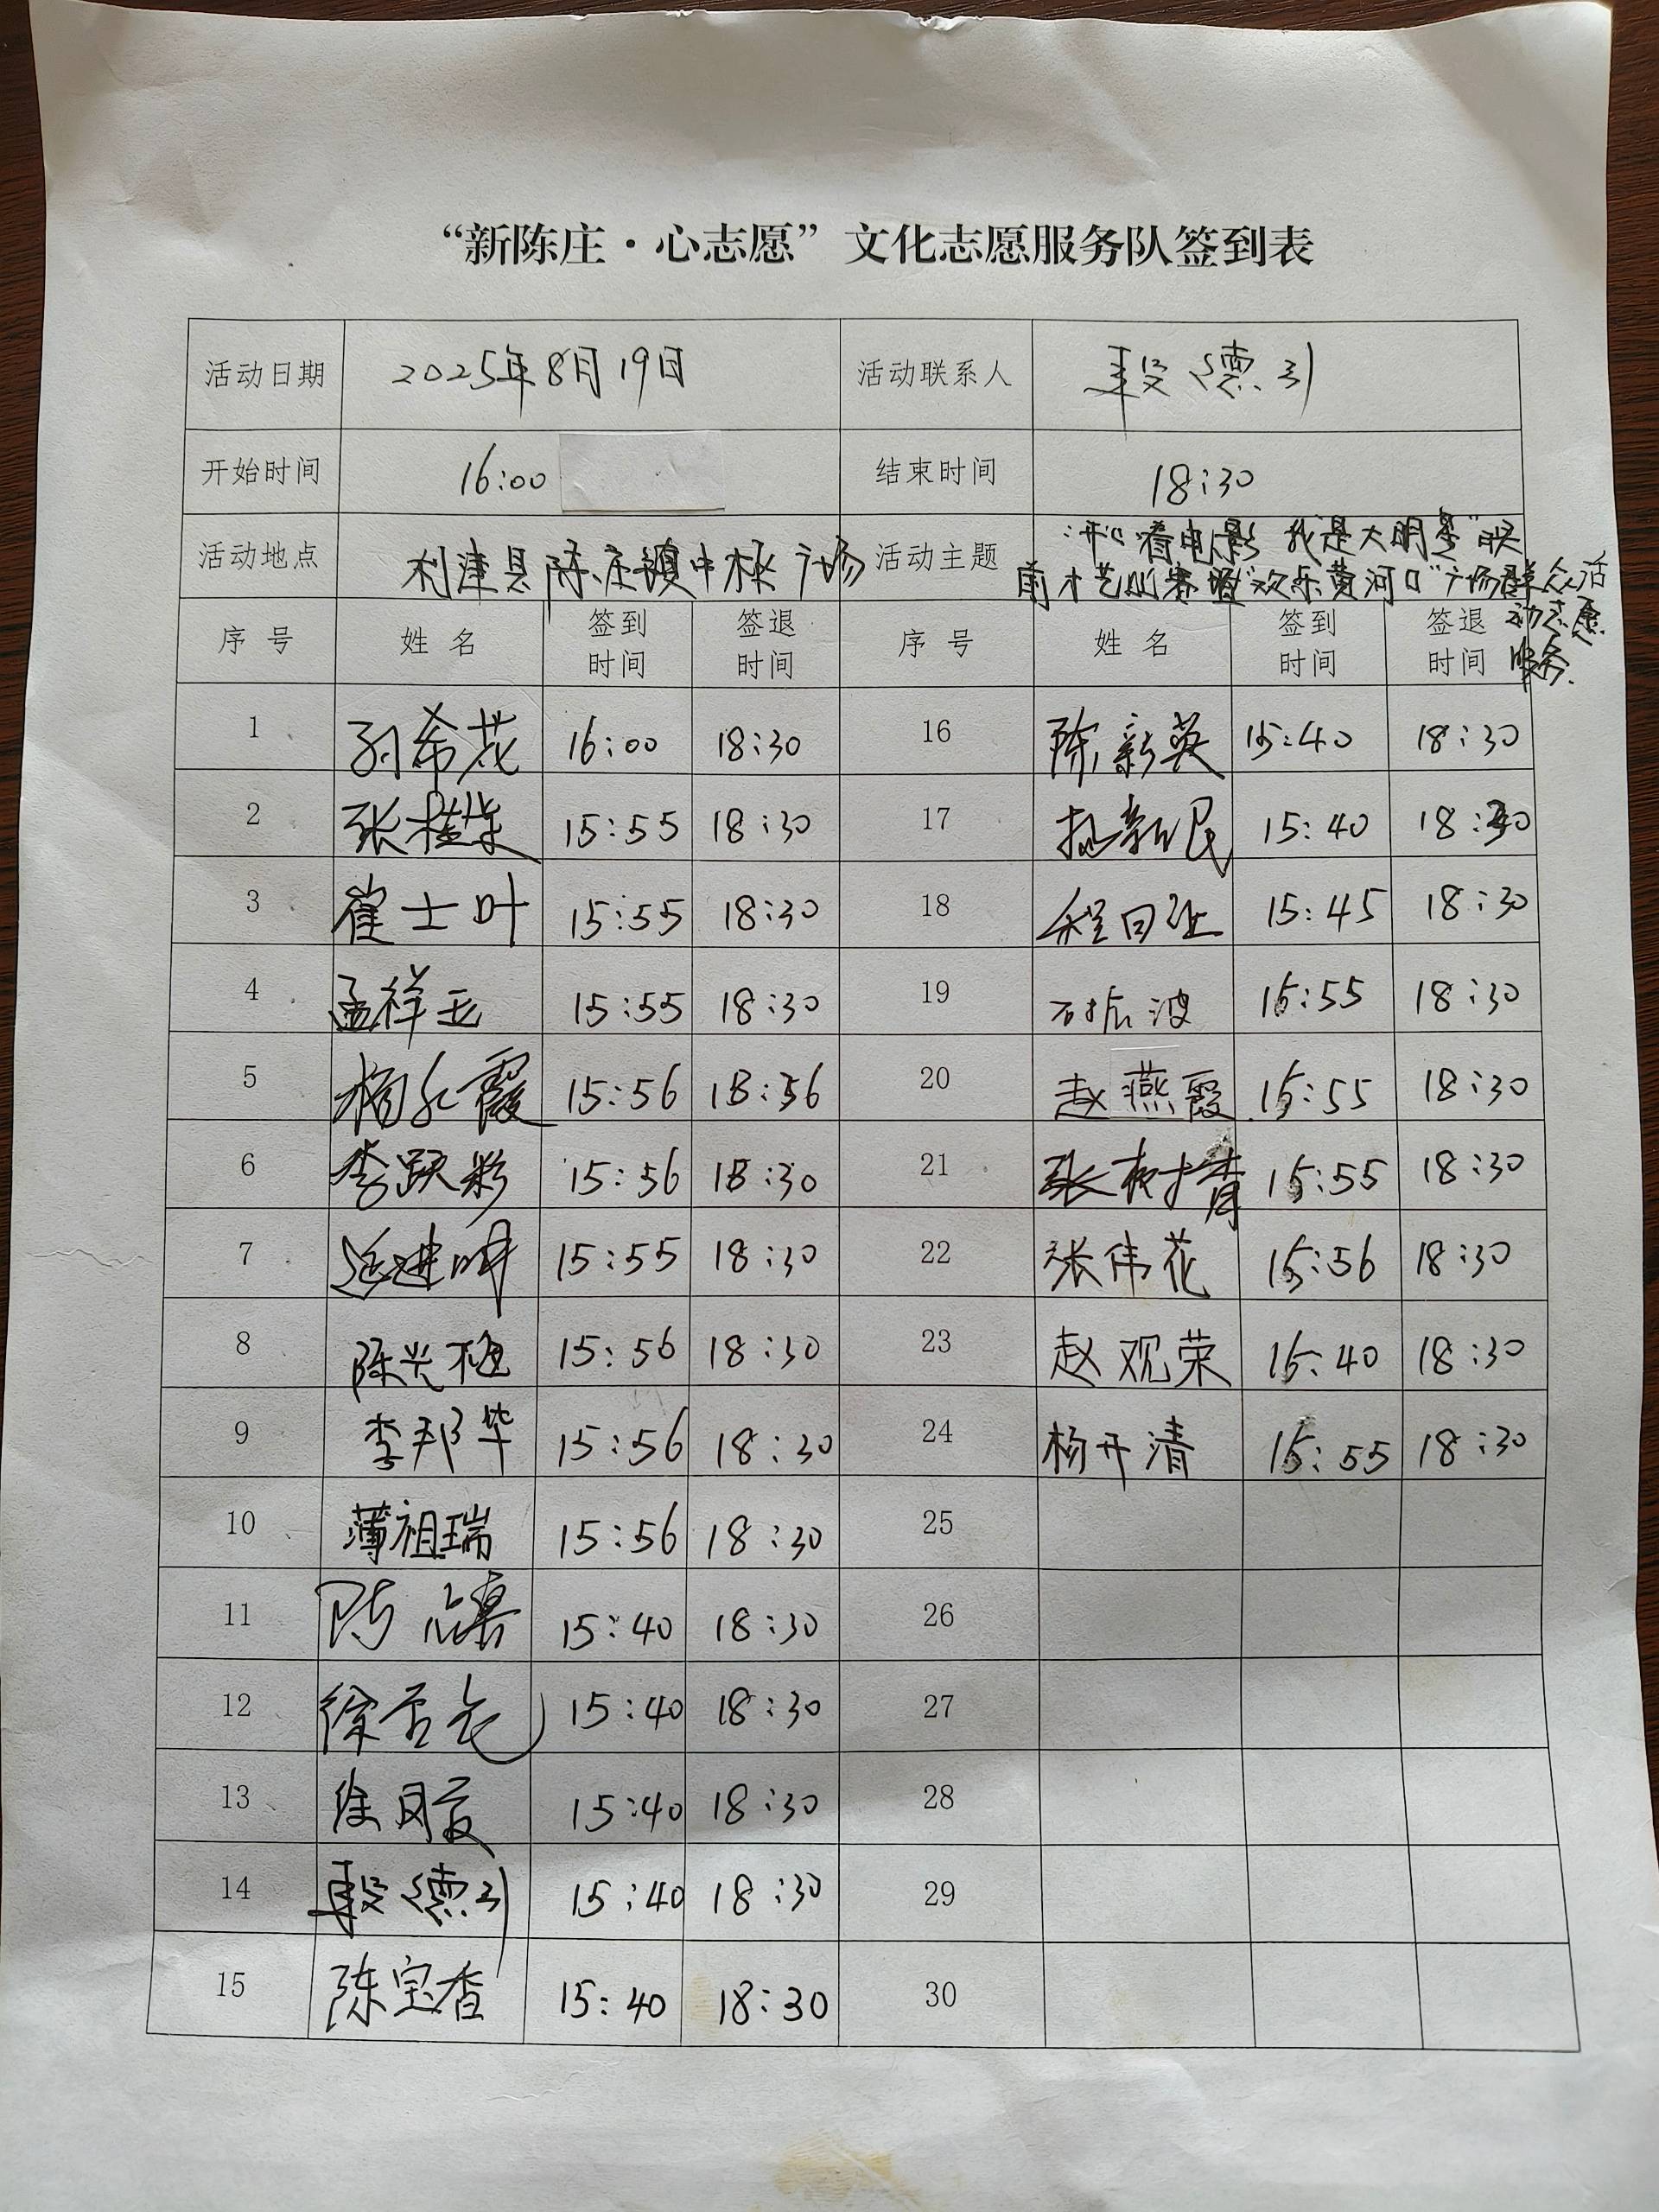 “新陈庄·心志愿”文化志愿服务队签到表
活动日期 2025年8月19日 活动联系人 段德引
开始时间 16:00 结束时间 18:30
活动地点 利津县陈庄镇中林广场 活动主题 “开心看电影 我是大明星”映
前才艺 赛暨“欢乐黄河口”广场群众活
动志愿
服务.
序号 姓名 签到时间 签退时间 序号 姓名 签到时间 签退时间
1 孙希花 16:00 18:30 16 陈新英 15:40 18:30
2 张桂荣 15:55 18:30 17 新民 15:40 18:30
3 崔士叶 15:55 18:30 18 程曰 15:45 18:30
4 孟祥玉 15:55 18:30 19 波 15:55 18:30
5 杨永霞 15:56 18:56 20 赵燕霞 15:55 18:30
6 李跃彩 15:56 18:30 21 张 15:55 18:30
7 15:55 18:30 22 张伟花 15:56 18:30
8 陈兴梅 15:56 18:30 23 赵观荣 15:40 18:30
9 李邦华 15:56 18:30 24 杨开清 15:55 18:30
10 薄祖瑞 15:56 18:30 25
11 陈 15:40 18:30 26
12 徐 15:40 18:30 27
13 徐风 15:40 18:30 28
14 段德引 15:40 18:30 29
15 陈宝香 15:40 18:30 30